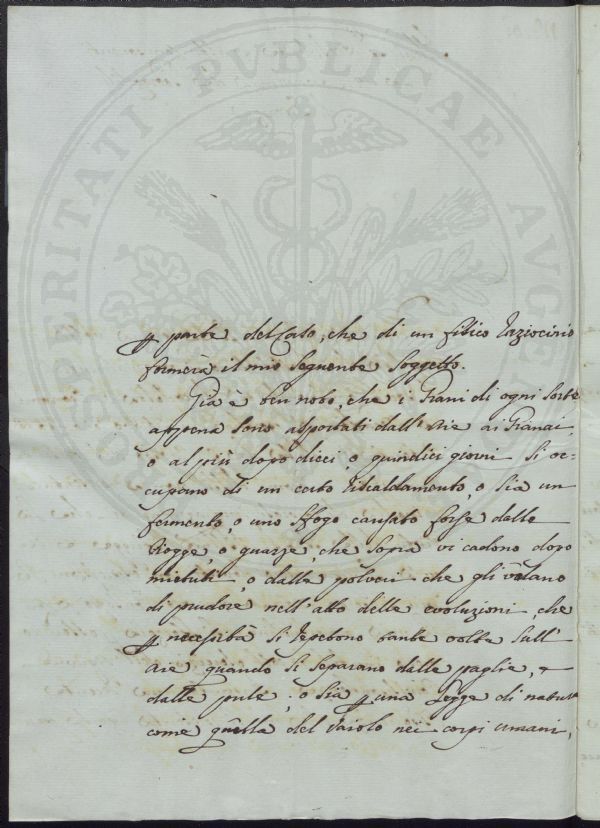 PROSPERITATI PUBLICAE AUGENDAE
p parte del Caso, che di un fisico raziocinio
formerà il mio seguente soggetto.
Già è ben noto, che i Grani di ogni sorte
appena sono asportati dall' Aie ai Granai,
o al più dopo dieci, o quindici giorni si oc=
cupano di un certo riscaldamento, o sia un
fermento, o uno sfogo causato forse dalle
Piogge, o guazze, che sopra vi cadono dopo
mietuti, o dalla polveri che gli
di pudore nell' atto delle evoluzioni, che
p necessità si repetono tante volte sull'
Aie quando si separano dalle paglie, e
dalle pule; o sia p una Legge di natura
come quella del Vaiolo nei corpi umani,